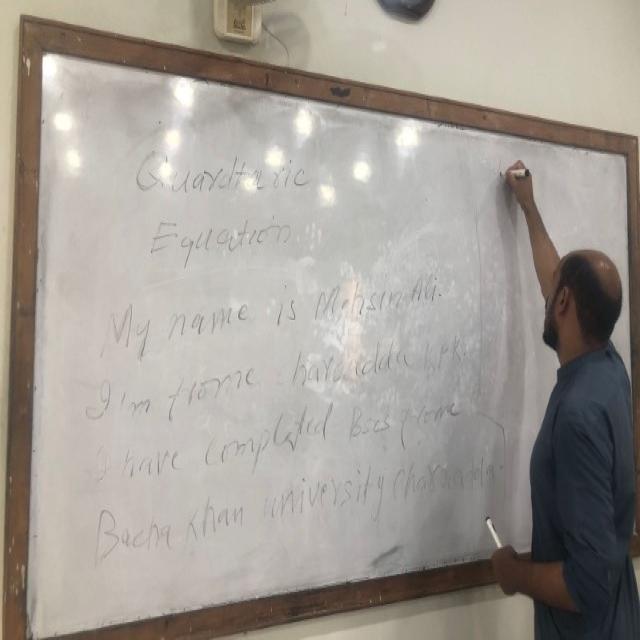 Quardtaric
Equation
My name is Mohsin Ali.
I'm frome harsadda KPK.
I have completed Bscs frome
Bacha Khan university Charsadda.